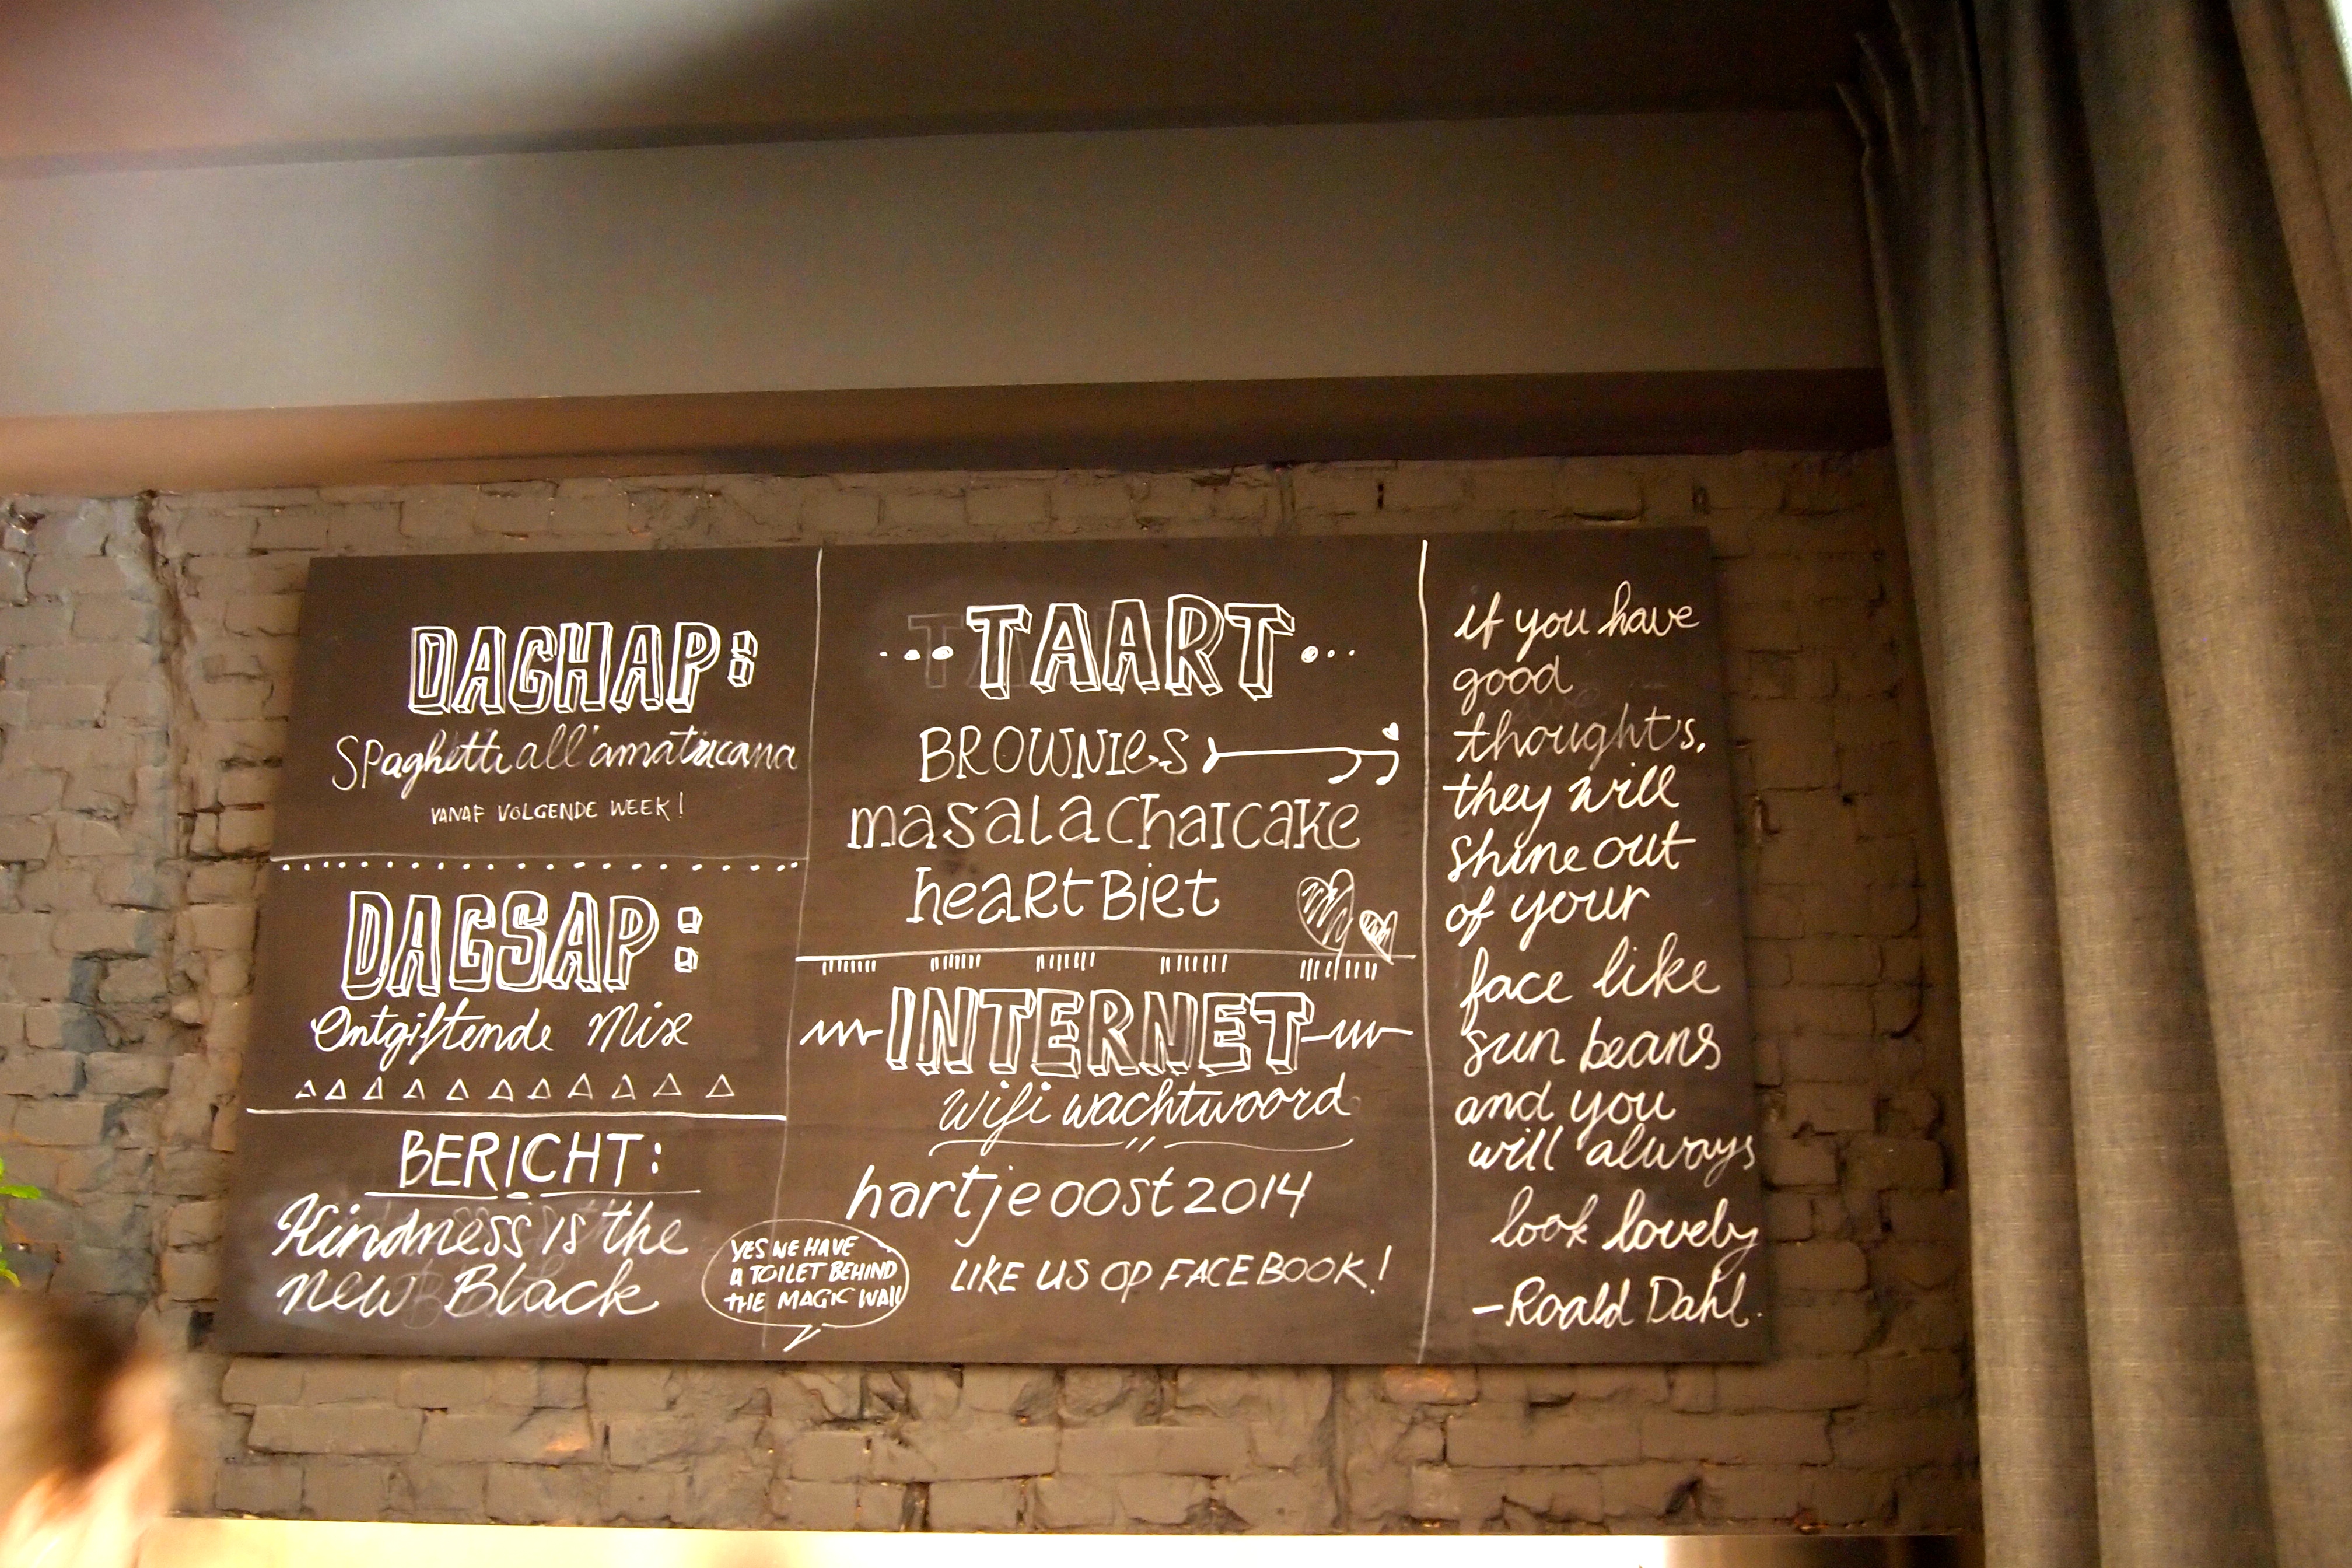 DAGHAP:
Spaghetti all'amatricana
VANAF VOLGENDE WEEK!
DAGSAP:
Ontgiftende Mix
BERICHT:
Kindness is the
new Black
YES WE HAVE
A TOILET BEHIND
THE MAGIC WALL
...TAART...
BROWNIES
masala Chai cake
heart Biet
INTERNET
wifi wachtwoord
hartjeoost2014
LIKE US OP FACEBOOK!
if you have
good
thoughts,
they will
shine out
of your
face like
sun beans
and you
will always
look lovely
-Roald Dahl.